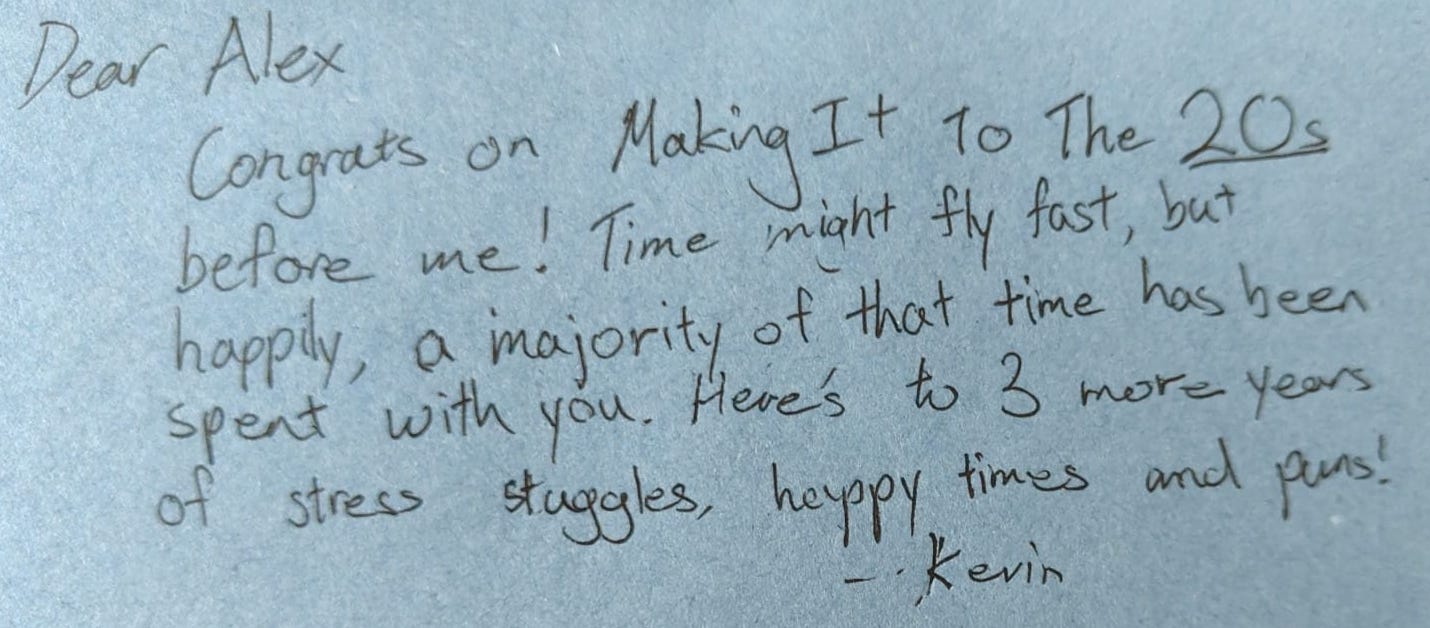 Dear Alex
Congrats on Making It To The 20s
before me! Time might fly fast, but
happily, a majority of that time has been
spent with you. Here's to 3 more years
of stress stuggles, happy times and puns!
-. Kevin